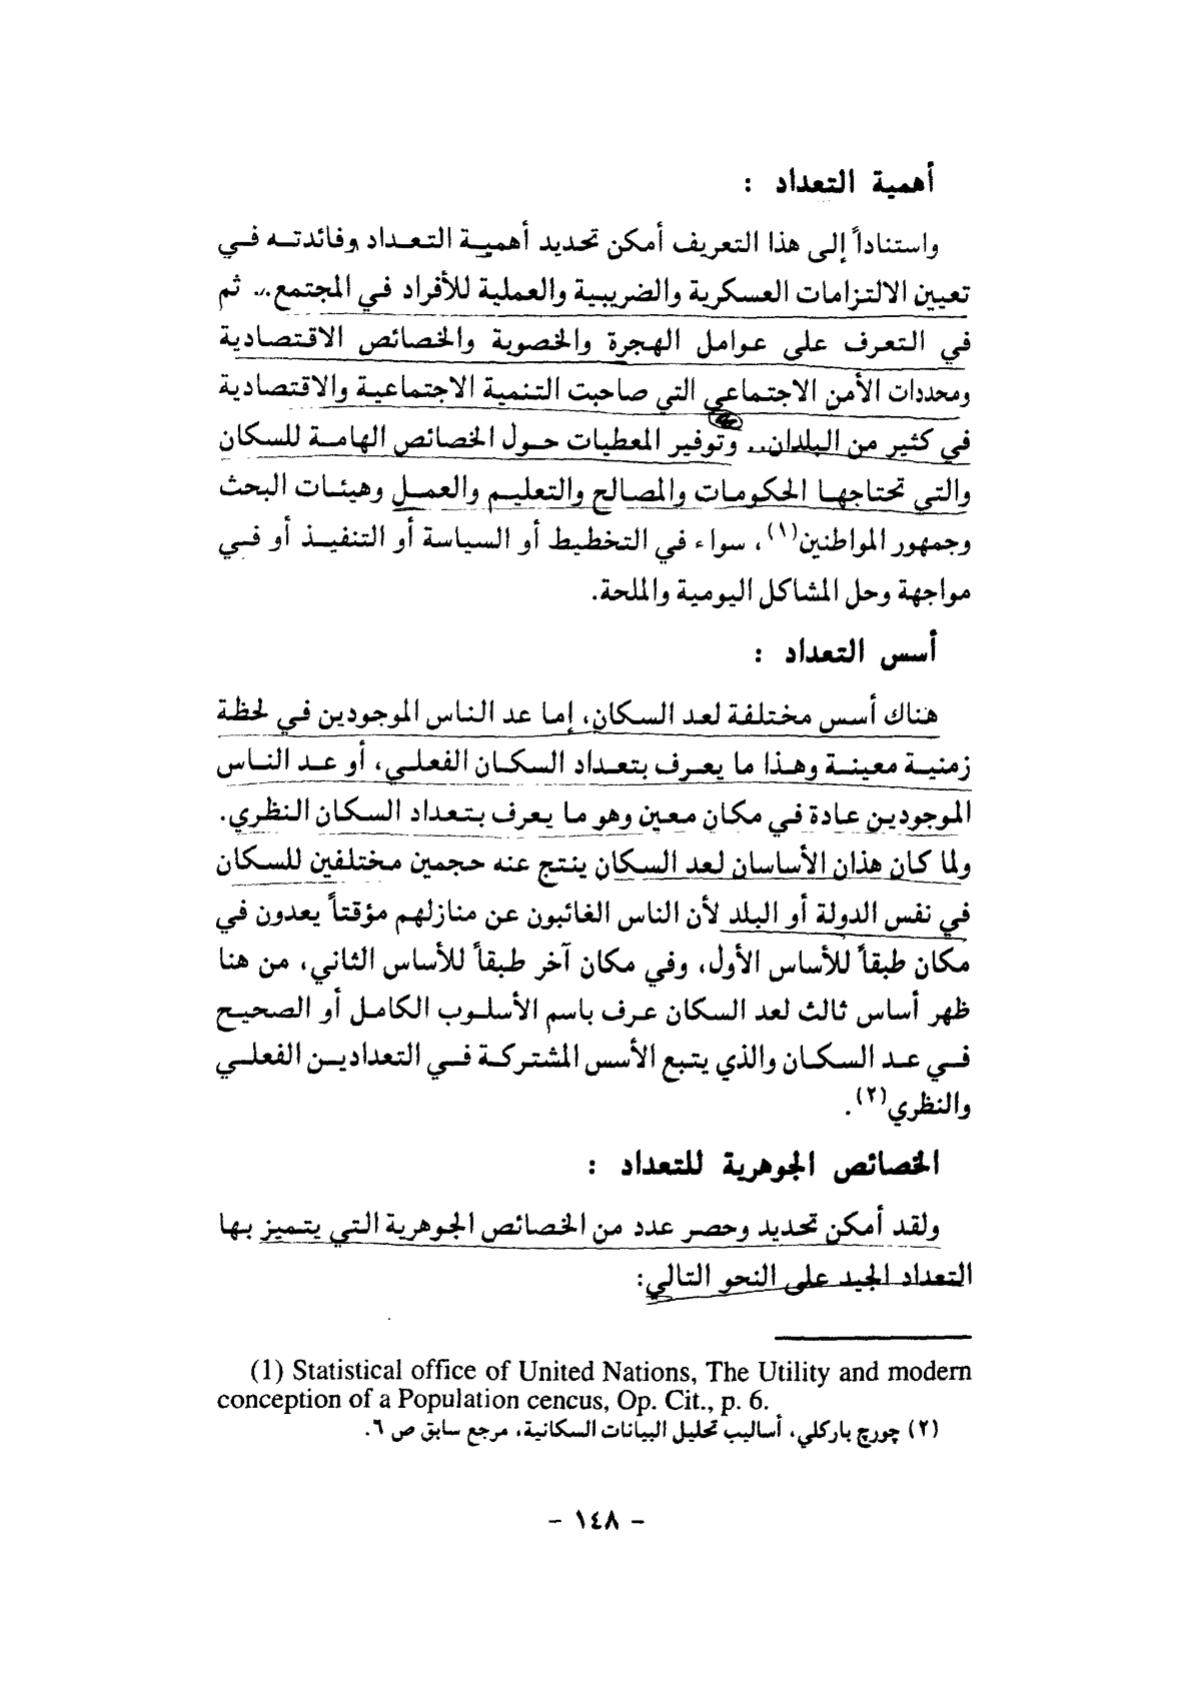 أهمية التعداد :
واستناداً إلى هذا التعريف أمكن تحديد أهمية التعداد وفائدته في
تعيين الالتزامات العسكرية والضريبية والعملية للأفراد في المجتمع.. ثم
في التعرف على عوامل الهجرة والخصوبة والخصائص الاقتصادية
ومحددات الأمن الاجتماعي التي صاحبت التنمية الاجتماعية والاقتصادية
في كثير من البلدان.. وتوفير المعطيات حول الخصائص الهامة للسكان
والتي تحتاجها الحكومات والمصالح والتعليم والعمل وهيئات البحث
وجمهور المواطنين(١)، سواء في التخطيط أو السياسة أو التنفيذ أو في
مواجهة وحل المشاكل اليومية والملحة.
أسس التعداد :
هناك أسس مختلفة لعد السكان، إما عد الناس الموجودين في لحظة
زمنية معينة وهذا ما يعرف بتعداد السكان الفعلي، أو عد الناس
الموجودين عادة في مكان معين وهو ما يعرف بتعداد السكان النظري.
ولما كان هذان الأساسان لعد السكان ينتج عنه حجمين مختلفين للسكان
في نفس الدولة أو البلد لأن الناس الغائبون عن منازلهم مؤقتاً يعدون في
مكان طبقاً للأساس الأول، وفي مكان آخر طبقاً للأساس الثاني، من هنا
ظهر أساس ثالث لعد السكان عرف باسم الأسلوب الكامل أو الصحيح
في عد السكان والذي يتبع الأسس المشتركة في التعدادين الفعلي
والنظري(٢).
الخصائص الجوهرية للتعداد :
ولقد أمكن تحديد وحصر عدد من الخصائص الجوهرية التي يتميز بها
التعداد الجيد على النحو التالي:
(1) Statistical office of United Nations, The Utility and modern
conception of a Population cencus, Op. Cit., p. 6.
(٢) چورچ باركلي، أساليب تحليل البيانات السكانية، مرجع سابق ص ٦.
- ١٤٨ -